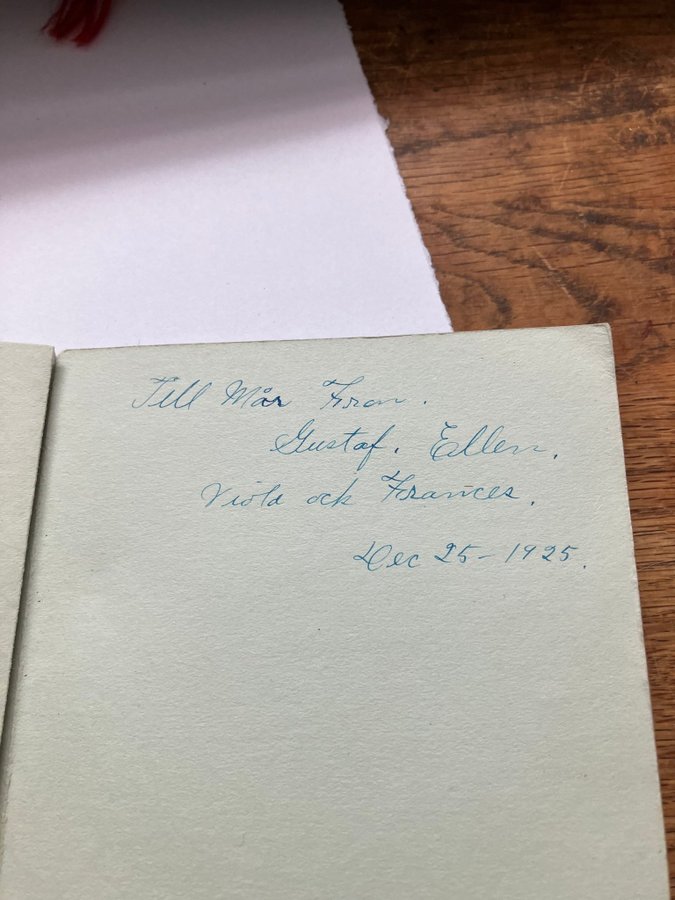 Till Mor Fron.
Gustaf. Ellen.
Viola ock Frances.
Dec 25-1925.